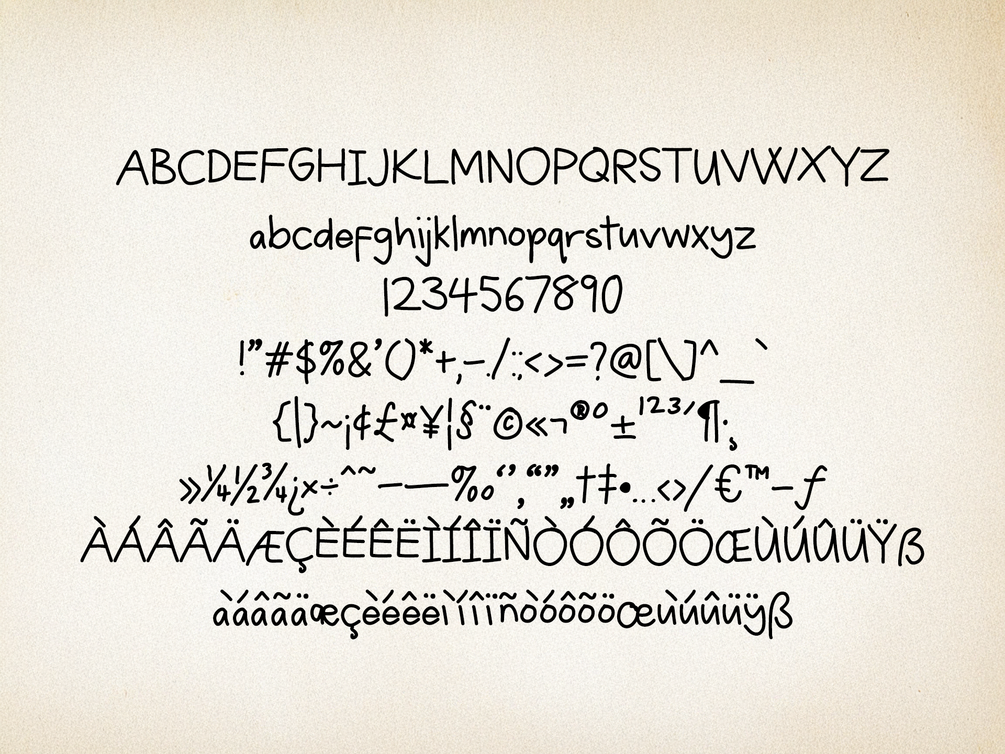 ABCDEFGHIJKLMNOPQRSTUVWXYZ
abcdefghijklmnopqrstuvwxyz
1234567890
!”#$%&’()*+,-./:;<>=?@[\]^_`
{|}~¡¢£¤¥¦§¨©«¬®°±¹²³´¶·¸
»¼½¾¿×÷ˆ˜–—‰‘’‚“”„†‡•…‹›⁄€™−ƒ
ÀÁÂÃÄÆÇÈÉÊËÌÍÎÏÑÒÓÔÕÖŒÙÚÛÜŸß
àáâãäæçèéêëìíîïñòóôõöœùúûüÿß